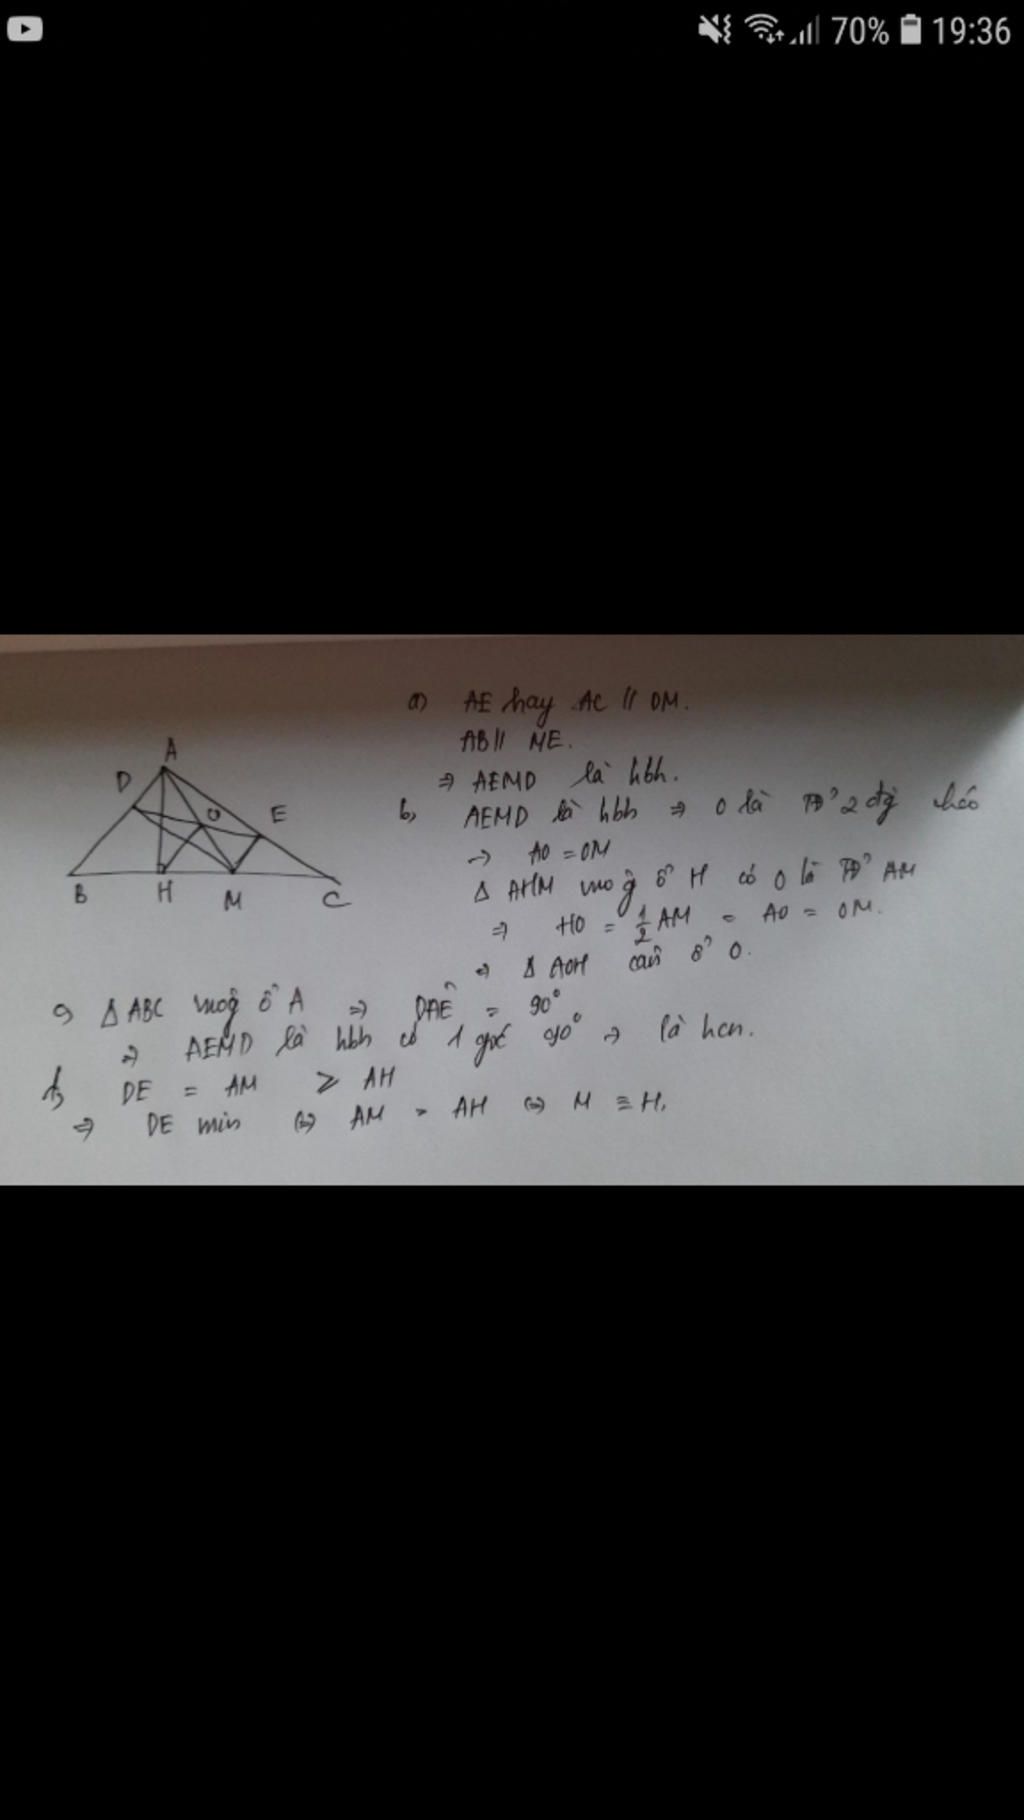 70% 19:36
a) AE hay AC // DM.
AB // ME.
⇒ AEMD là hbh.
b, AEMD là hbh ⇒ O là TĐ' 2 đg chéo
→ AO = OM
Δ AHM vuog ở H có O là TĐ' AM
⇒ HO = 1/2 AM = AO = OM.
⇒ Δ AOH cân ở O.
A
D
O
E
B
H
M
C
c) Δ ABC vuog ở A ⇒ DAÊ = 90°
⇒ AEMD là hbh có 1 góc 90° → là hcn.
DE = AM ≥ AH
⇒ DE min ⇔ AM = AH ⇔ M ≡ H.